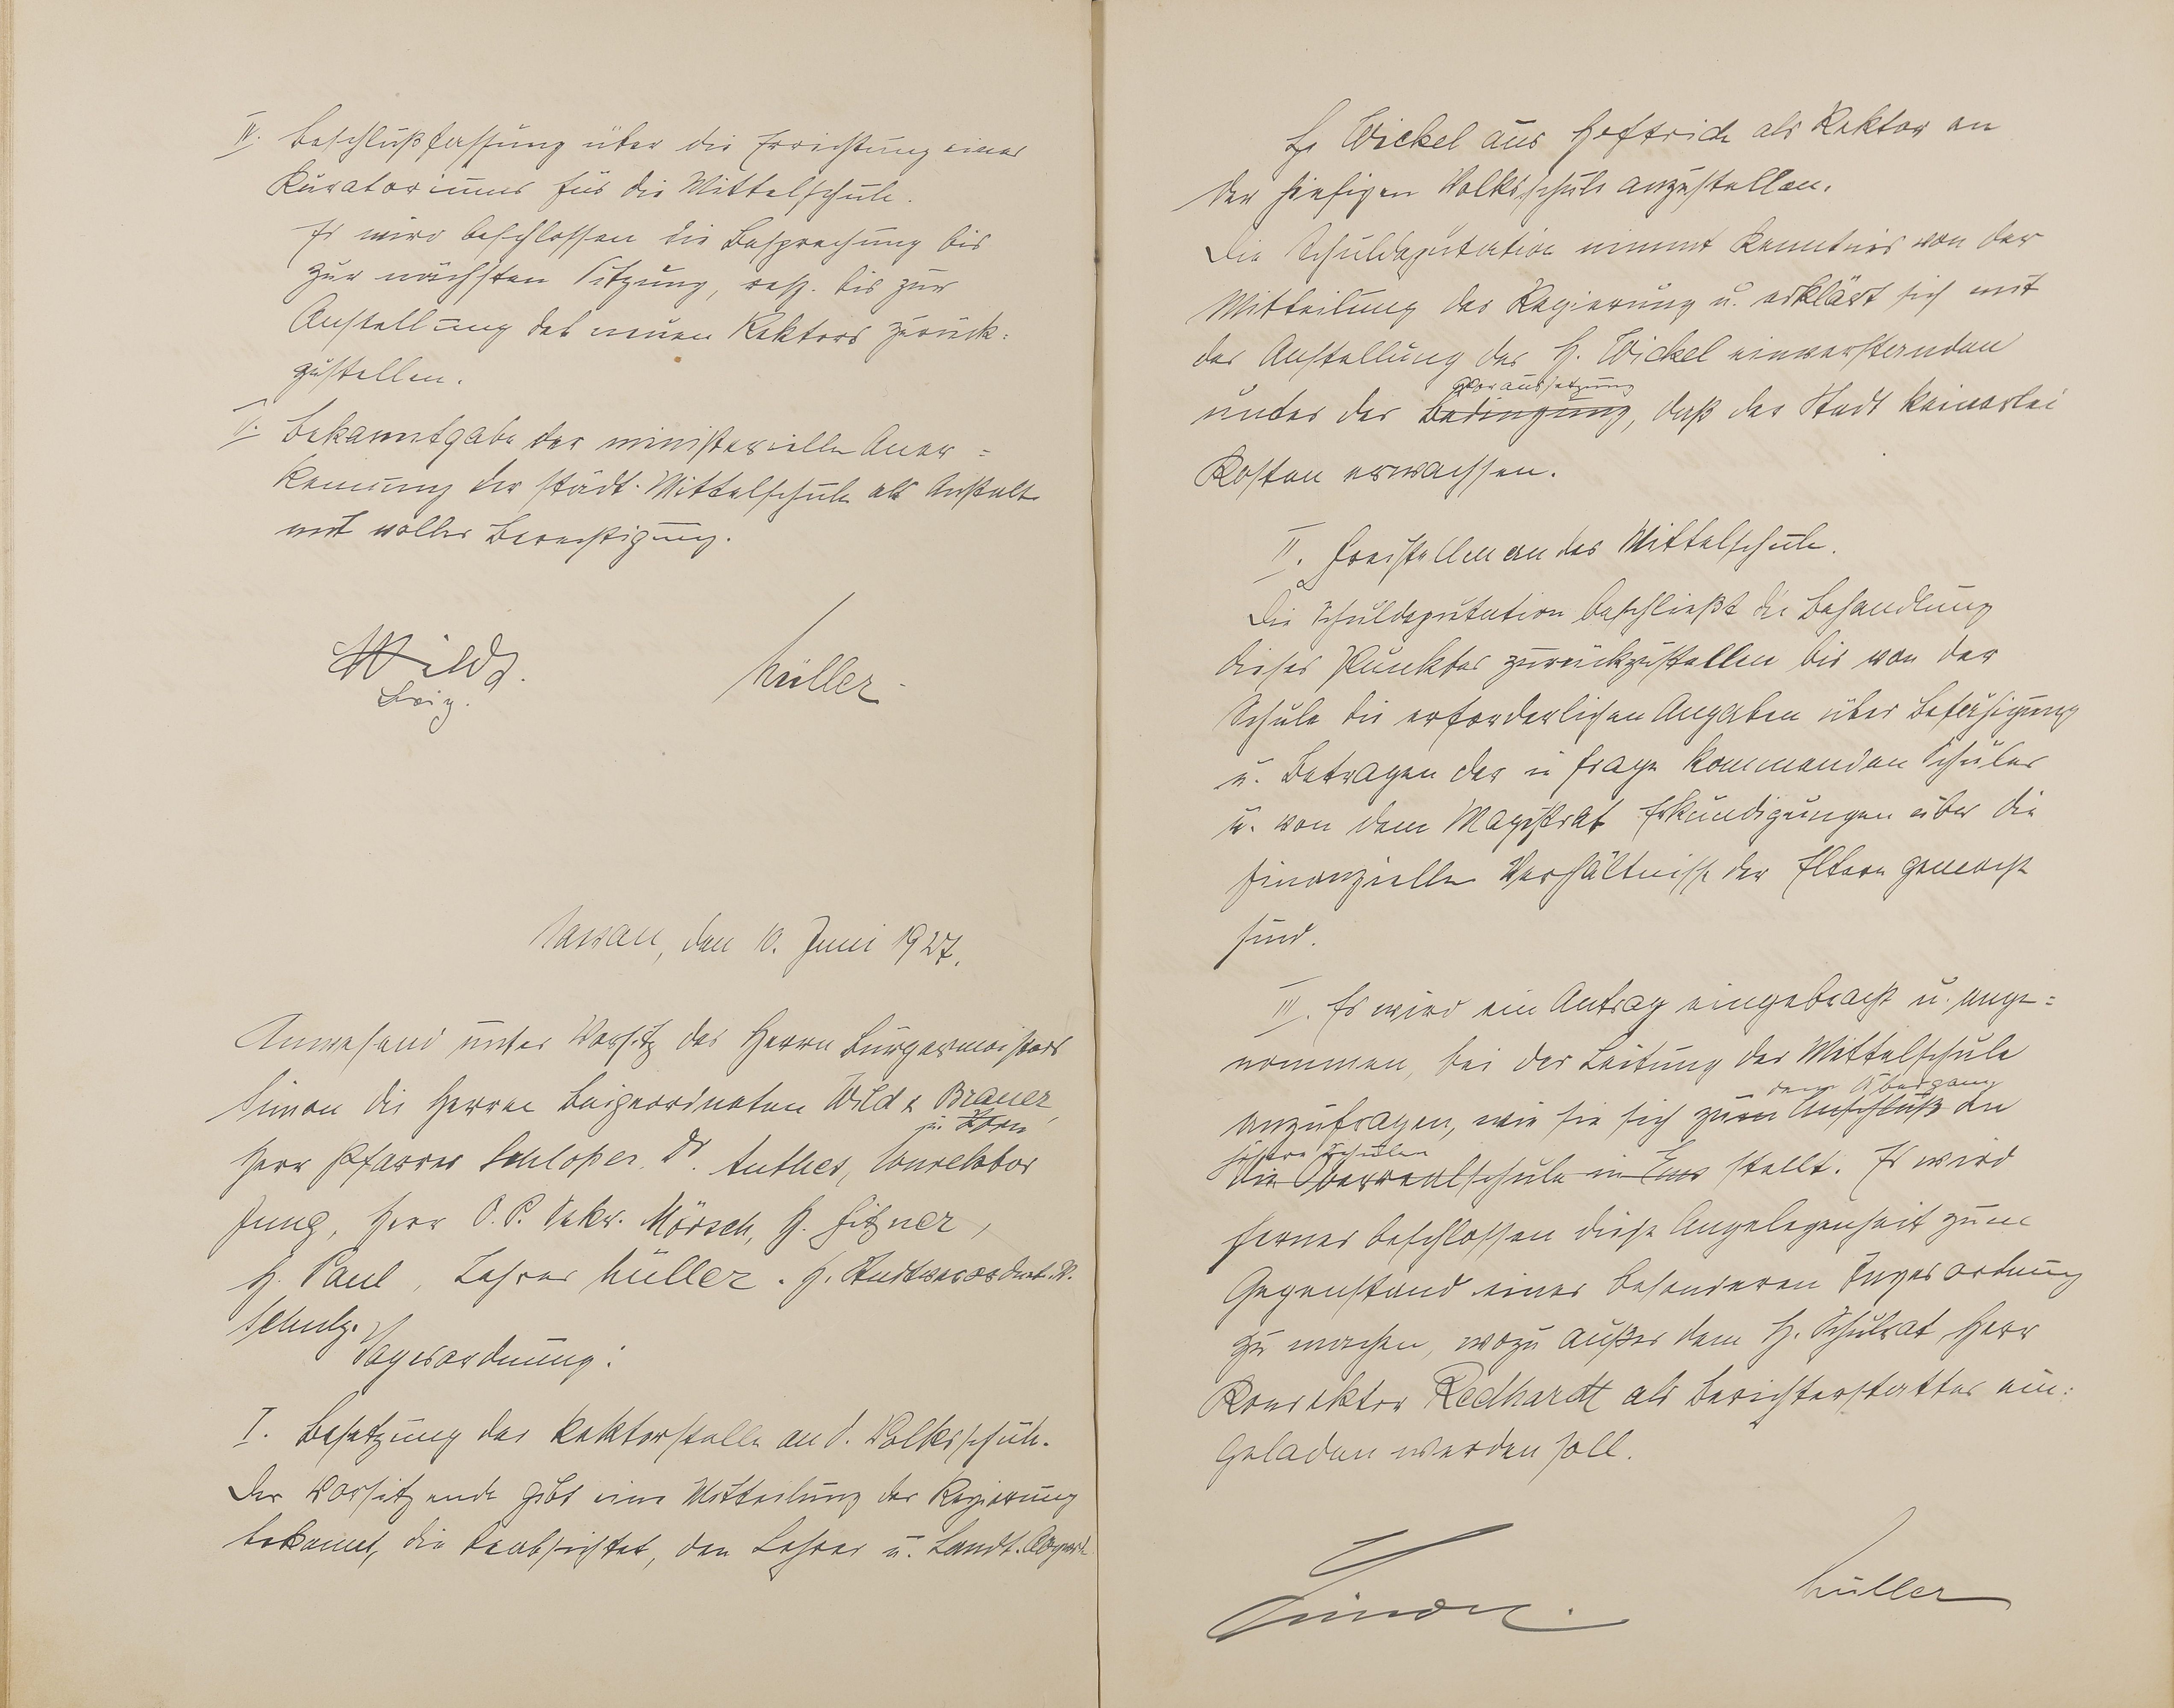 IV. Beschlußfassung über die Errichtung eines
Kuratoriums für die Mittelschule.
Es wird beschlossen die Besprechung bis
zur nächsten Sitzung, resp. bis zur
Anstellung des neuen Rektors zurück-
zustellen.
V. Bekanntgabe der ministeriellen Aner-
kennung der städt. Mittelschule als Anstalt
mit voller Berechtigung.
Wild
Beig.
Müller
Nassau, den 10. Juni 1927.
Anwesend unter Vorsitz des Herrn Bürgermeisters
Simon die Herren Beigeordneten Wild & Brauer,
Herr Pfarrer Schlosser, Dr. Anthes, Konrektor
Jung, Herr O. P. Sekr. Mörsch, H. Fitzner,
H. Paul, Lehrer Müller. H. Stadtverordnet. V.
Schulz.
Tagesordnung:
I. Besetzung der Rektorstelle an d. Volksschule.
Der Vorsitzende gibt eine Mitteilung der Regierung
bekannt, die beabsichtet, den Lehrer u. Landt. Abgeord.
H. Wickel aus Heftrich als Rektor an
der hiesigen Volksschule anzustellen.
Die Schuldeputation nimmt Kenntnis von der
Mitteilung der Regierung u. erklärt sich mit
der Anstellung des H. Wickel einverstanden
Voraussetzung
unter der Bedingung, daß der Stadt keinerlei
Kosten erwachsen.
II. Freistellen an der Mittelschule.
Die Schuldeputation beschließt die Behandlung
dieses Punktes zurückzustellen bis von der
Schule die erforderlichen Angaben über Befähigung
u. Betragen der in Frage kommenden Schüler
u. von dem Magistrat Erkundigungen über die
finanziellen Verhältnisse der Eltern gemacht
sind.
III. Es wird ein Antrag eingebracht u. ange-
nommen, bei der Leitung der Mittelschule
dem Übergang
anzufragen, wie sie sich zum Anschluß an
höhere Schulen
die Oberrealschule in Ems stellt. Es wird
ferner beschlossen diese Angelegenheit zum
Gegenstand einer besonderen Tagesordnung
zu machen, wozu außer dem H. Schulrat Herr
Konrektor Redhardt als Berichterstatter ein-
geladen werden soll.
Simon.
Müller